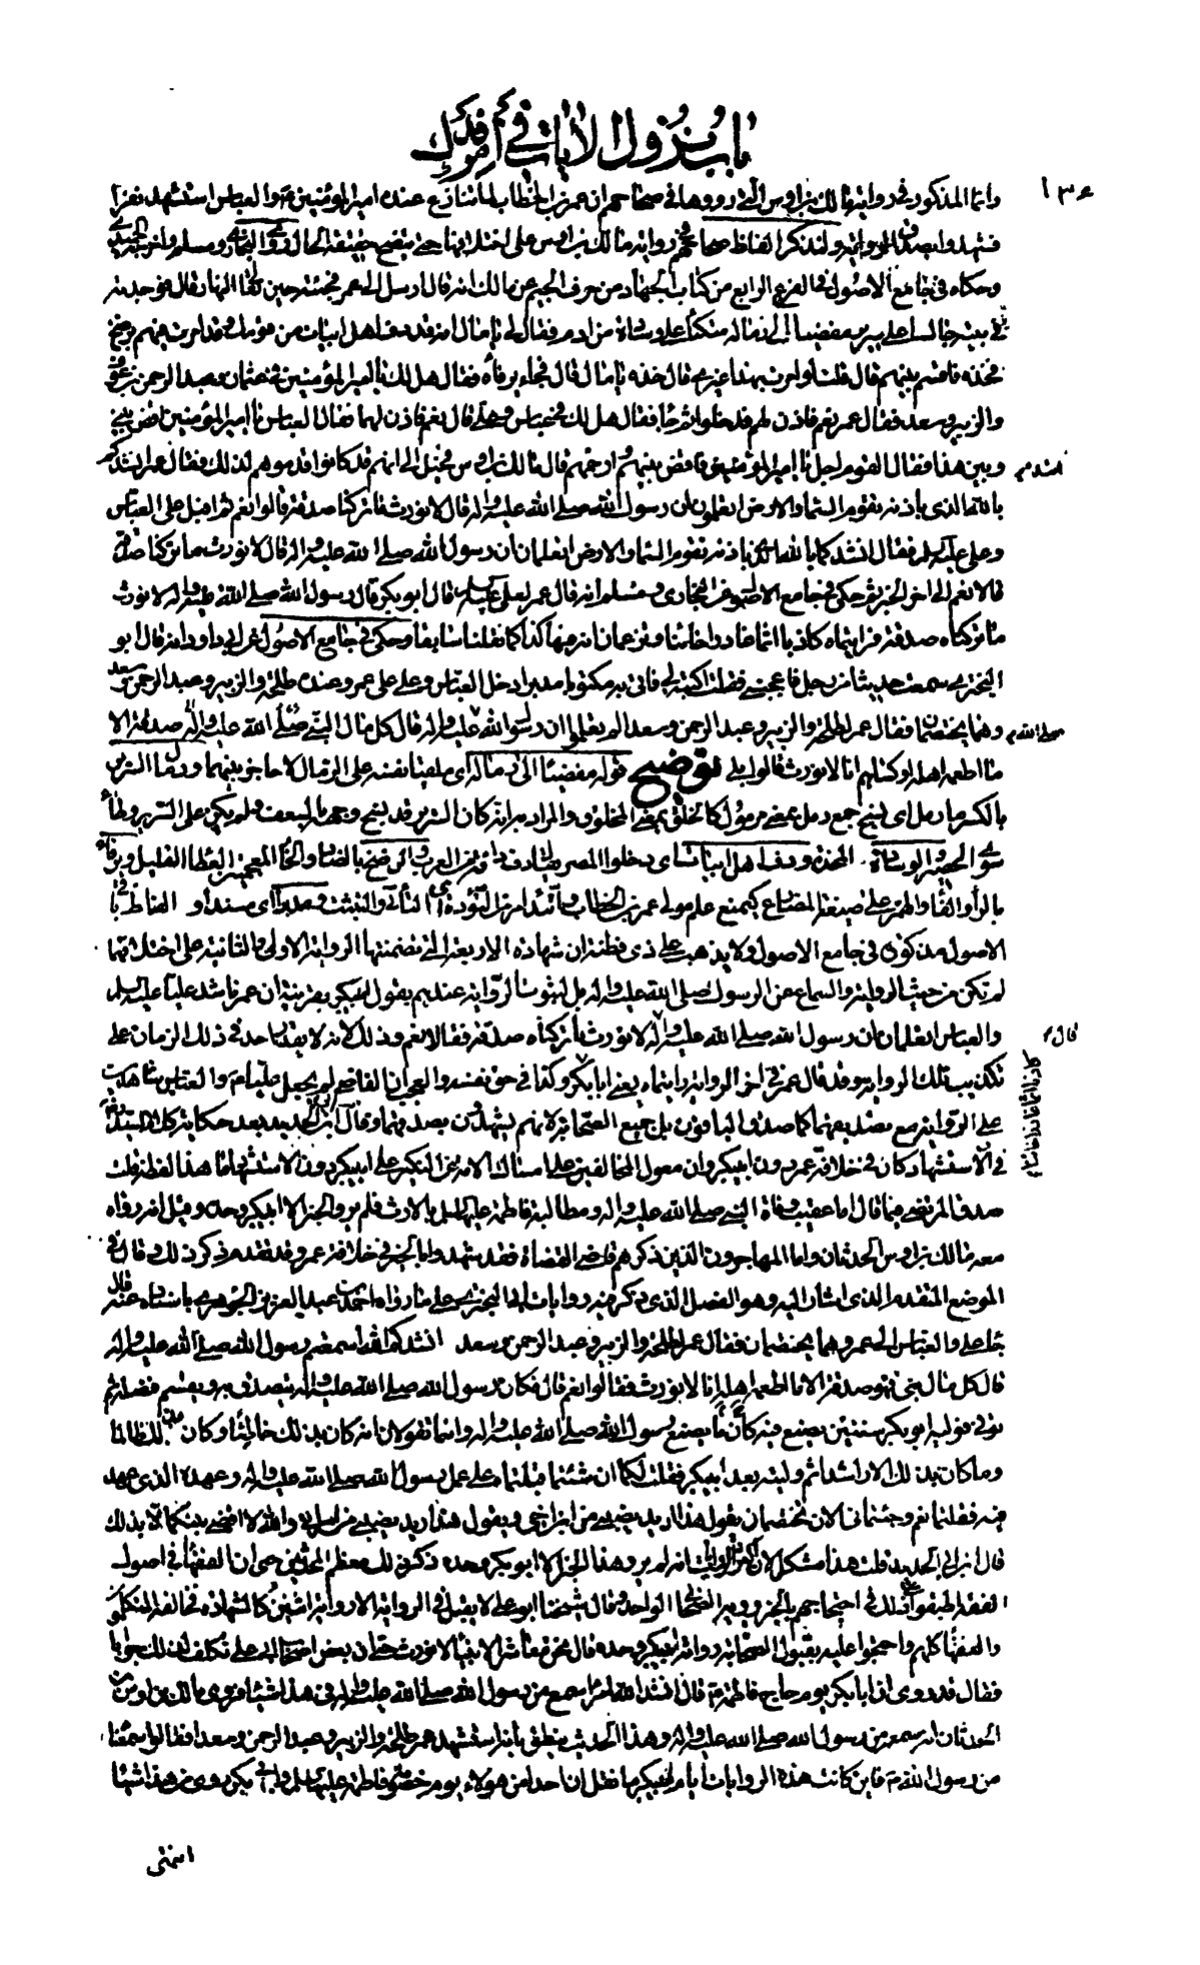 باب نزول الآيات في أمر فدك
١٣٤
وانما المذكور في رواية مالك بن اوس التي رووها في صحاحهم ان عمر بن الخطاب لما تنازع عنده امير المؤمنين ع والعباس استشهد نفرا
فشهدوا بصدق الرواية ولنذكر الفاظ صحاحهم في رواية مالك بن اوس على اختلافها حتى يتضح حقيقة الحال روى البخاري ومسلم واخرجه الحميدي
وحكاه في جامع الاصول في الفرع الرابع من كتاب الجهاد من حرف الجيم عن مالك انه قال ارسل الي عمر فجئته حين تعالى النهار قال فوجدته
في بيته جالسا على سرير مفضيا الى رماله متكئا على وسادة من ادم فقال لي يا مال انه قد دف اهل ابيات من قومك وقد امرت فيهم برضخ
فخذه فاقسم بينهم قال قلت لو امرت بهذا غيري قال خذه يا مال قال فجاء يرفأ فقال هل لك يا امير المؤمنين في عثمان وعبد الرحمن بن عوف
والزبير وسعد فقال عمر نعم فاذن لهم فدخلوا ثم جاء فقال هل لك في عباس وعلي قال نعم فاذن لهما فقال العباس يا امير المؤمنين اقض بيني
وبين هذا فقال القوم اجل يا امير المؤمنين فاقض بينهم وارحهم قال مالك بن اوس فخيل الي انهم قد كانوا قدموهم لذلك فقال عمر انشدكم
بالله الذي باذنه تقوم السماء والارض اتعلمون ان رسول الله صلى الله عليه واله قال لا نورث ما تركنا صدقة قالوا نعم ثم اقبل على العباس
وعلي عليه السلم فقال انشدكما بالله الذي باذنه تقوم السماء والارض اتعلمان ان رسول الله صلى الله عليه واله قال لا نورث ما تركنا صدقة
قالا نعم الى اخر الخبر ثم حكى في جامع الاصول عن البخاري ومسلم انه قال عمر لعلي عليه السلم قال ابو بكر قال رسول الله صلى الله عليه واله لا نورث
ما تركناه صدقة فرايتماه كاذبا اثما غادرا خائنا وتزعمان انه فيها كذا كما نقلنا سابقا وحكى في جامع الاصول عن ابي داود انه قال ابو
البختري سمعت حديثا من رجل فاعجبني فقلت اكتبه لي فاتى به مكتوبا مدبرا دخل العباس وعلي على عمر وعنده طلحة والزبير وعبد الرحمن وسعد
وهما يختصمان فقال عمر لطلحة والزبير وعبد الرحمن وسعد الم تعلموا ان رسول الله عليه واله قال كل مال النبي صلى الله عليه واله صدقة الا
صلى الله
ما اطعمه اهله او كساهم انا لا نورث قالوا بلى توضيح قوله مفضيا الى رماله اي ملقيا نفسه على الرمال لا حاجز بينهما ورمال السرير
بالكسر
سوى الحصير والوسادة المخدة ودف اهل ابيات اي دخلوا المصر
بالراء والفاء والهمز على صيغة المضارع كيمنع علم مولى عمر بن الخطاب وتئد امر من التؤدة اي التأني والتثبت
الاصول مذكورة في جامع الاصول ولا يذهب على ذي فطنة ان شهادة الاربعة التي تضمنتها الرواية الاولى والثانية على اختلافهما
لم تكن من حيث الرواية والسماع عن الرسول صلى الله عليه واله بل لثبوت الرواية عندهم بقول ابي بكر بقرينة ان عمر ناشد عليا عليه السلم
والعباس اتعلمان ان رسول الله صلى الله عليه واله لا نورث ما تركناه صدقة فقالا نعم وذلك لانه لا يقدر احد في ذلك الزمان على
قال
تكذيب تلك الرواية وقد قال عمر في اخر الرواية رايتماه يعني ابا بكر وكذا في حق نفسه والعجب ان القاضي لم يجعل عليا ع والعباس شاهدين
كاذبا اثما غادرا خائنا
على الرواية مع تصديقهما كما صدق الباقون بل جميع الصحابة لانهم يشهدون بصدقهما وقال ابن ابي الحديد بعد حكاية كلام السيد
في ان الاستشهاد كان في خلافة عمر دون ابي بكر وان معول المخالفين على امساك الامة عن النكير على ابي بكر دون الاستشهاد ما هذا لفظه قلت
صدق المرتضى فيما قال اما عقيب وفاة النبي صلى الله عليه واله ومطالبة فاطمة عليها السلم بالارث فلم يرو الخبر الا ابو بكر وحده وقيل انه رواه
معه مالك بن اوس بن الحدثان واما المهاجرون الذين ذكرهم قاضي القضاة فقد شهدوا بالخبر في خلافة عمر وقد تقدم ذكر ذلك وقال في
الموضع المتقدم الذي اشار اليه وهو الفصل الذي ذكر فيه روايات ابي البختري على ما رواه احمد بن عبد العزيز الجوهري باسناده عنه قال
جاء علي والعباس الى عمر وهما يختصمان فقال عمر لطلحة والزبير وعبد الرحمن وسعد انشدكم الله اسمعتم رسول الله صلى الله عليه واله
قال كل مال نبي فهو صدقة الا ما اطعمه اهله انا لا نورث فقالوا نعم قال وكان رسول الله صلى الله عليه واله يتصدق به ويقسم فضله ثم
توفي فوليه ابو بكر سنتين يصنع فيه كما كان يصنع رسول الله صلى الله عليه واله وانتما تقولان انه كان بذلك خاطئا وكان بذلك ظالما
وما كان بذلك الا راشدا ثم وليته بعد ابي بكر فقلت لكما ان شئتما قبلتماه على عمل رسول الله صلى الله عليه واله وعهده الذي عهد
فيه فقلتما نعم وجئتماني الان تختصمان يقول هذا اريد نصيبي من ابن اخي ويقول هذا اريد نصيبي من امراتي والله لا اقضي بينكما الا بذلك
قال ابن ابي الحديد قلت هذا مشكل لان اكثر الروايات انه لم يرو هذا الخبر الا ابو بكر وحده ذكر ذلك معظم المحدثين حتى ان الفقهاء في اصول
الفقه اطبقوا على ذلك في احتجاجهم بالخبر برواية الصحابي الواحد وقال شيخنا ابو علي لا يقبل في الرواية الا رواية اثنين كالشهادة فخالفه المتكلمون
والفقهاء كلهم واحتجوا عليه بقبول الصحابة رواية ابي بكر وحده قال نحن معاشر الانبياء لا نورث حتى ان بعض اصحاب ابي علي تكلف لذلك جوابا
فقال قد روي ان ابا بكر يوم حاج فاطمة ع قال انشد الله امرءا سمع من رسول الله صلى الله عليه واله في هذا شيئا فروى مالك بن اوس بن
الحدثان انه سمعه من رسول الله صلى الله عليه واله وهذا الحديث ينطق بانه استشهد عمر طلحة والزبير وعبد الرحمن وسعدا فقالوا سمعناه
من رسول الله ص فاين كانت هذه الروايات ايام ابي بكر ما نقل ان احدا من هؤلاء يوم خصومة فاطمة عليها السلم وابي بكر روى من هذا شيئا
انتهى